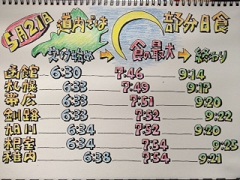 5月21日 道内の 部分日食
欠け始め → 食の最大 → 終わり
函館 6:30 7:46 9:14
札幌 6:33 7:49 9:17
帯広 6:33 7:51 9:20
釧路 6:33 7:52 9:22
旭川 6:34 7:51 9:20
根室 6:34 7:54 9:25
稚内 6:38 7:54 9:21